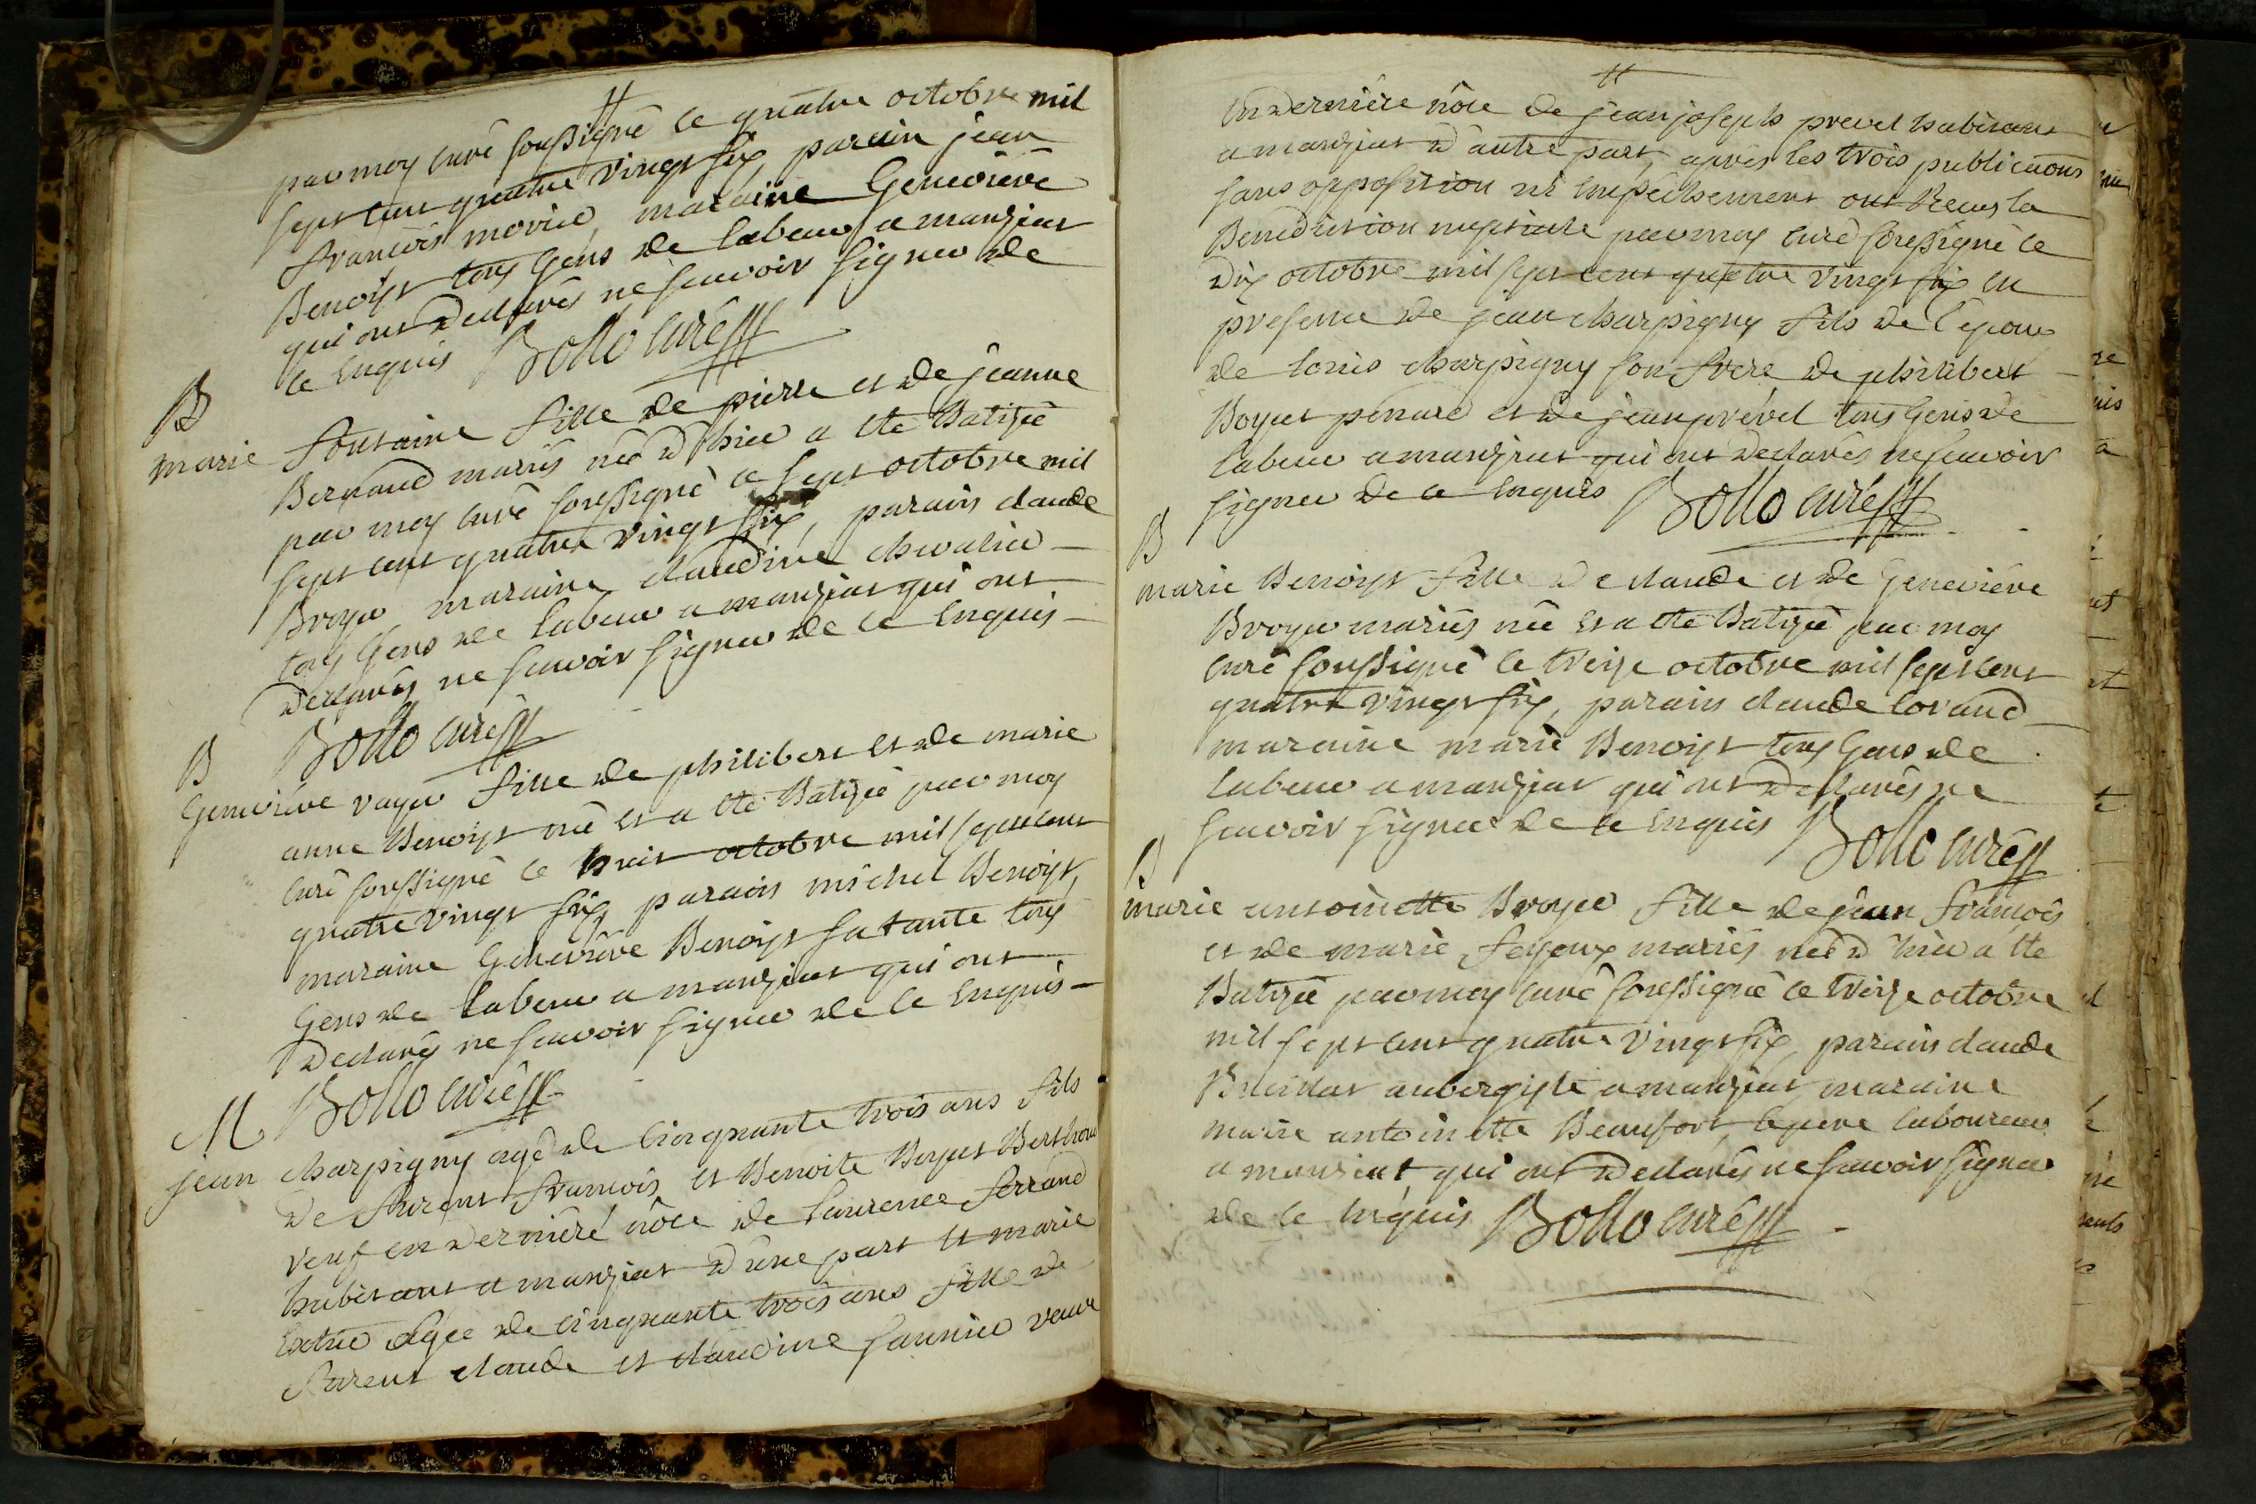 par moy curé soussigné le quatre octobre mil
sept cent quatre vingt six parain jean
francois morice, maraine Geneviève
Benoist tous Gens de labeur a manziat
qui ont declarés ne scavoir signer de
ce enquis Bollo curé
B
marie fontaine fille de pierre et de jeanne
Bernand mariés née d'hier a ete Batizée
par moy curé soussigné le sept octobre mil
sept cent quatre vingt six, parain claude
Broyer maraine claudine chevalier
tous Gens de labeur a manziat qui ont
declarés ne scavoir signer de ce enquis
Bollo curé
B
Geneviève vayer fille de philibert et de marie
anne Benoist née et a ete Batizée par moy
curé soussigné le huit octobre mil sept cent
quatre vingt six, parain michel Benoist,
maraine Geneviève Benoist sa tante tous
Gens de labeur a manziat qui ont
declarés ne scavoir signer de ce enquis
Bollo curé
M
jean charpigny agé de cinquante trois ans fils
de furent francois et Benoite Boyat Berthou
veuf en derniere nôce de laurence ferrand
habitant a manziat d'une part et marie
agée de cinquante trois ans fille de
furent claude et claudine saunier veuve
en dernière nôce de jean joseph prevel habitant
a manziat d'autre part, après les trois publications
sans opposition ni empechement ont Reçus la
Benediction nuptiale par moy curé soussigné le
dix octobre mil sept cent quatre vingt six en
presence de jean charpigny fils de l'epoux
de louis charpigny son frere de philibert
Boyat penard et de jean prével tous Gens de
labeur a manziat qui ont declarés ne scavoir
signer de ce enquis Bollo curé
B
marie Benoist fille de claude et de Geneviève
Broyer mariés née et a ete Batizée par moy
curé soussigné le treize octobre mil sept cent
quatre vingt six, parain claude lorand
maraine marie Benoist tous Gens de
labeur a manziat qui ont declarés ne
scavoir signer de ce enquis Bollo curé
B
marie antoinette Broyer fille de jean francois
et de marie feyeux mariés née d'hier a ete
Batizée par moy curé soussigné le treize octobre
mil sept cent quatre vingt six, parain claude
aubergiste a manziat maraine
marie antoinette Beaufort, le pere laboureur
a manziat qui ont declarés ne scavoir signer
de ce enquis Bollo curé